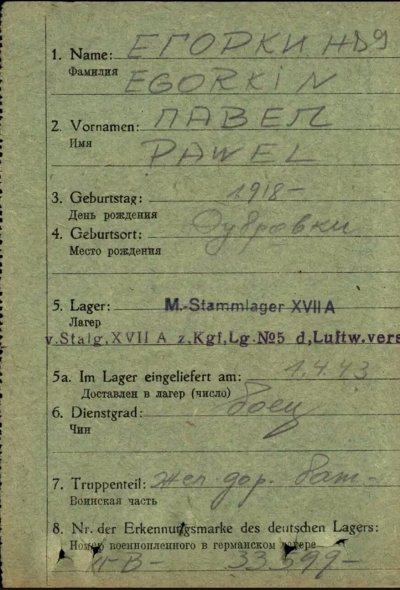 1. Name: ЕГОРКИН
Фамилия EGORKIN
2. Vornamen: ПАВЕЛ
Имя PAWEL
3. Geburtstag: 1918-
День рождения
4. Geburtsort: Дубровки
Место рождения
5. Lager: M.-Stammlager XVII A
Лагер
v.Stalg.XVII A z.Kgf.Lg.№5 d,Luftw.vers
5a. Im Lager eingeliefert am: 1.4.43
Доставлен в лагер (число)
6. Dienstgrad: боец
Чин
7. Truppenteil: жел. дор. бат-
Воинская часть
8. Nr. der Erkennungsmarke des deutschen Lagers:
Номер военнопленного в германском лагере
33.599-